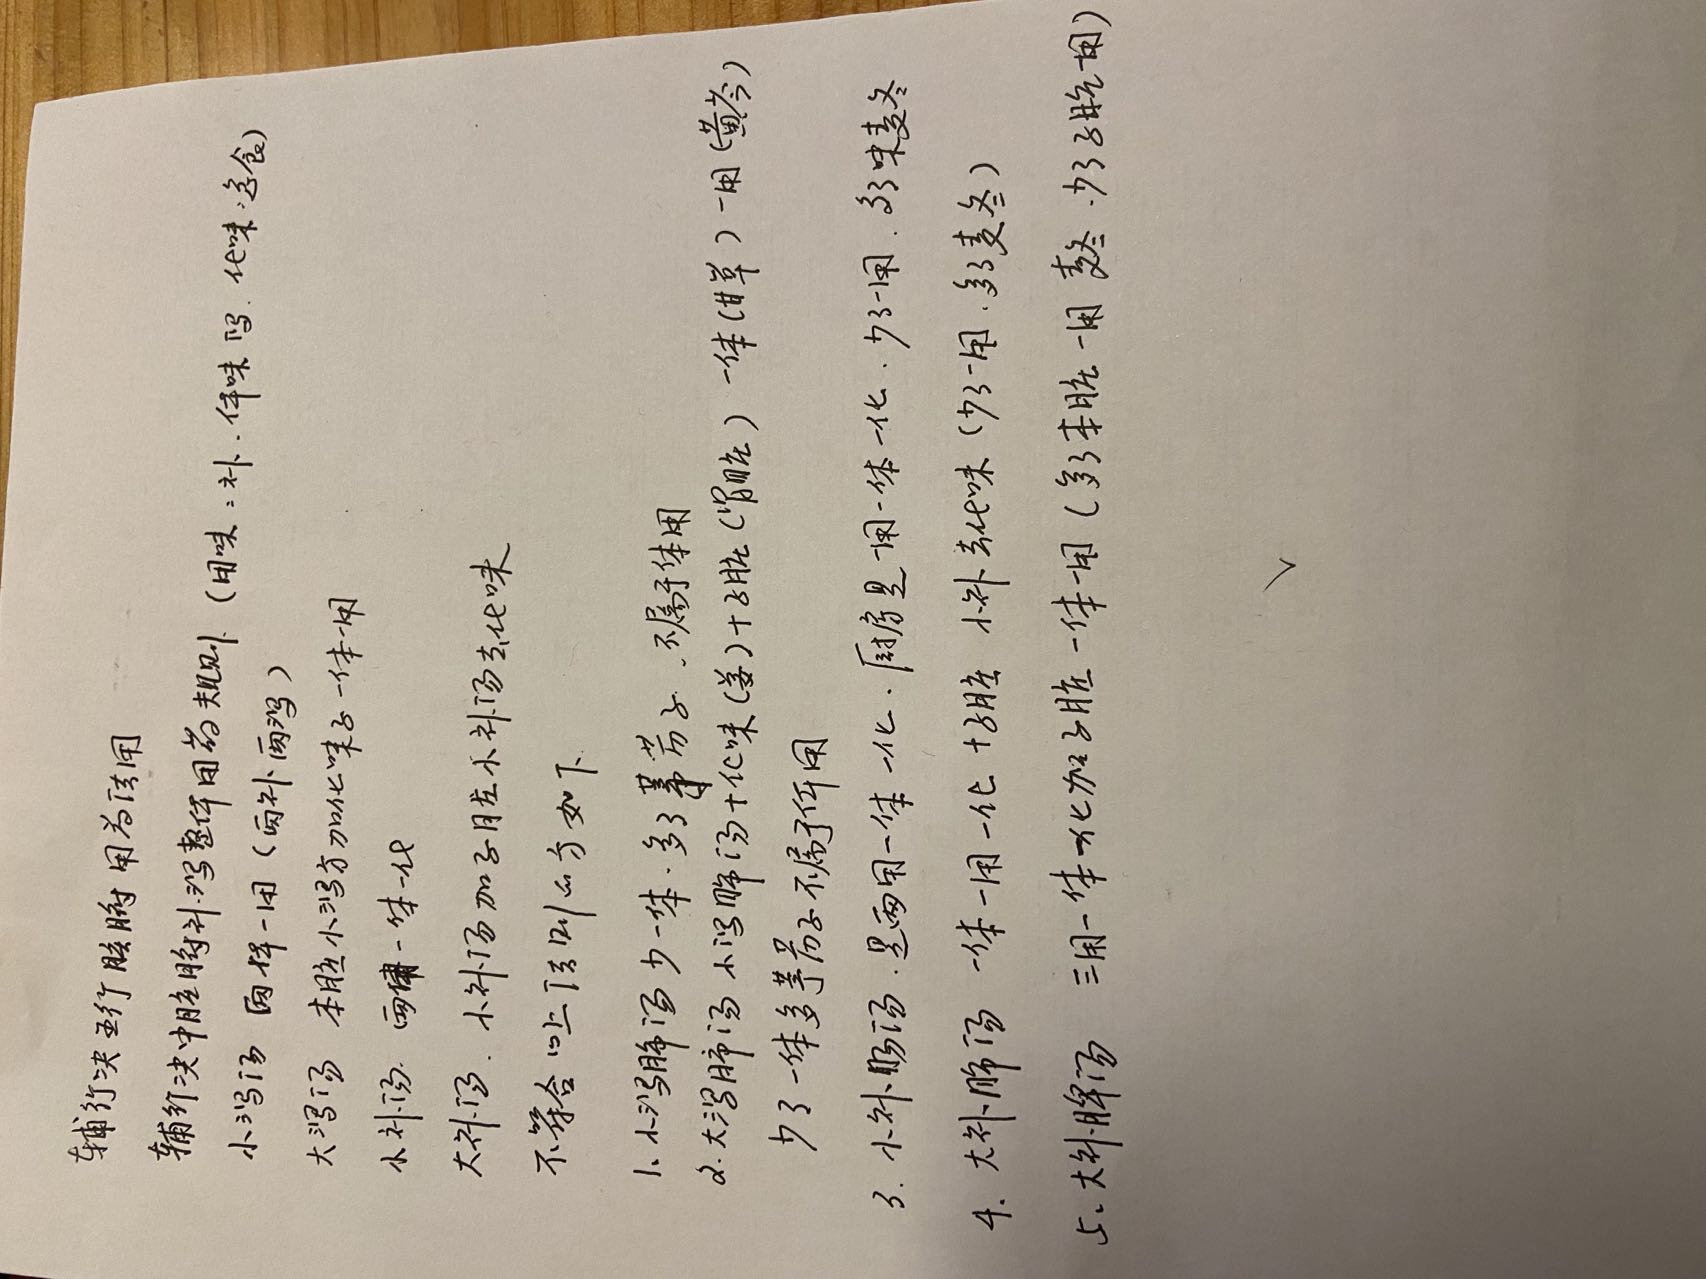 辅行决五行脏腑用药法用
辅行决中脏腑补泻整体用药规则（用味：补．体味泻．化味：
小泻汤 两体一用（两补两泻）
大泻汤 本脏小泻方加化味子一体一用
小补汤．两用一体一化
大补汤．小补汤加子脏小补汤去化味
不符合以上法则的方如下
1．小泻脾汤 少一体．多了葶苈子．不属于体用
2．大泻肺汤 小泻肺汤＋化味（姜）＋子脏（肾脏）一体（甘草）一用（黄芩）
少了一体多葶苈子不属于体用
3．小补肠汤．是两用一体一化．厨房是一用一体一化．少了一用．多了味麦冬
4．大补肺汤 一体一用一化＋子脏 小补去化味（少了一用．多了麦冬）
5．大补脾汤 三用一体一化加子脏一体一用（多了本脏一用 麦冬．少了子脏一用）